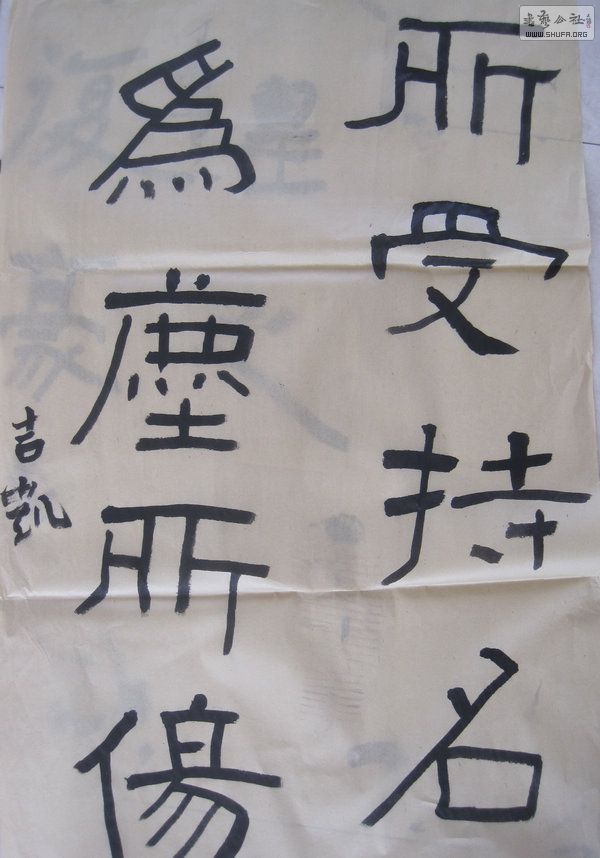 所受持名
為塵所傷
吉凱
書藝公社
WWW.SHUFA.ORG